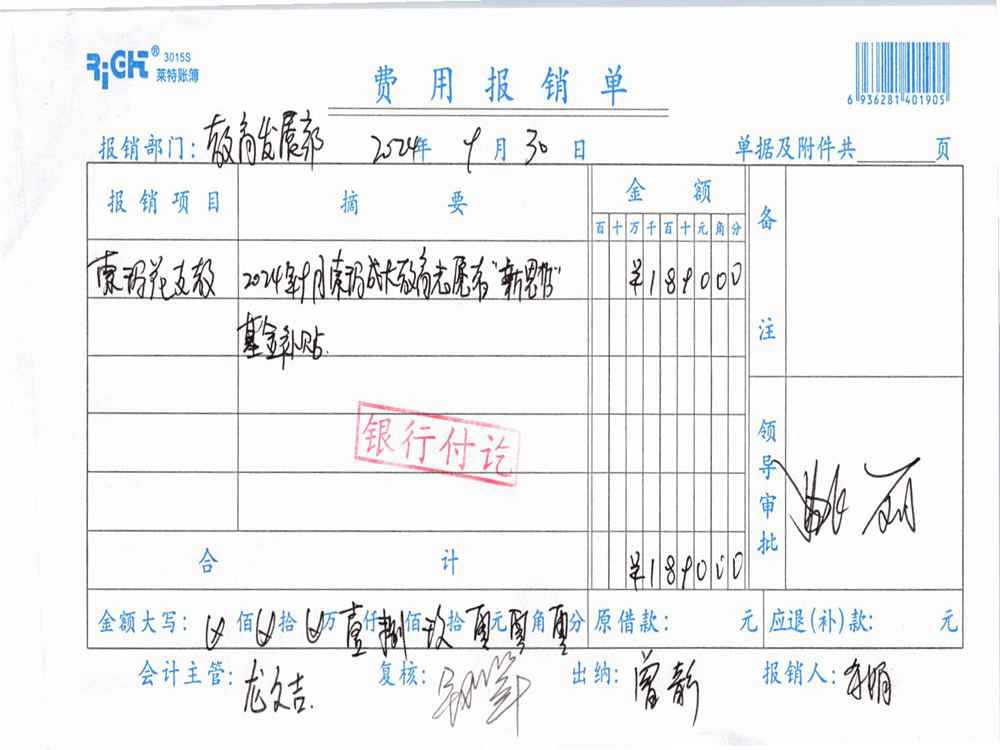 RiGHT® 3015S
莱特账簿
费用报销单
6 936281 401905
报销部门: 教育发展部 2024年 9月 30日 单据及附件共 页
报销项目 摘要 金额 备注
百十万千百十元角分
索玛花支教 2024年9月索玛成大教育发展
¥189000
基金补贴.
银行付讫
领导审批
合计 ¥189000
金额大写: 佰 拾 万 壹仟 捌佰 玖拾 零元 零角 零分 原借款: 元 应退(补)款: 元
会计主管: 龙文吉. 复核: 出纳: 曾 报销人: